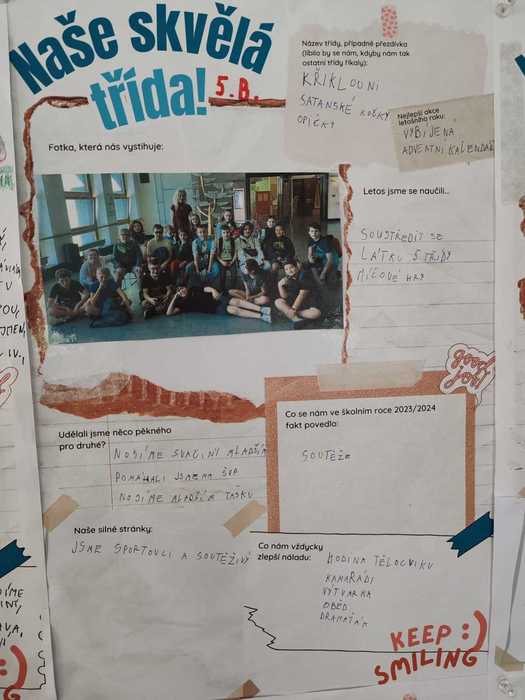 Naše skvělá
třída!
5.B.
Název třídy, případně přezdívka
(líbilo by se nám, kdyby nám tak
ostatní třídy říkaly):
KŘIKLOUNI
SATANSKÉ KOČKY
OPIČKY
Nejlepší akce
letošního roku:
VYBÍJENÁ
ADVENTNÍ KALENDÁŘ
Fotka, která nás vystihuje:
Letos jsme se naučili...
SOUSTŘEDIT SE
LÁTKU 5.TŘÍDY
MÍČOVÉ HRY
good
job!
Udělali jsme něco pěkného
pro druhé?
NOSÍME SVAČINY MLADŠÍM
POMÁHALI JSME NA ŠVP
NOSÍME MLADŠÍM TAŠKU
Co se nám ve školním roce 2023/2024
fakt povedlo:
SOUTĚŽE
Naše silné stránky:
JSME SPORTOVCI A SOUTĚŽIVÝ
Co nám vždycky
zlepší náladu:
HODINA TĚLOCVIKU
KAMARÁDI
VÝTVARKA
OBĚD
DRAMAŤÁK
KEEP :)
SMILING